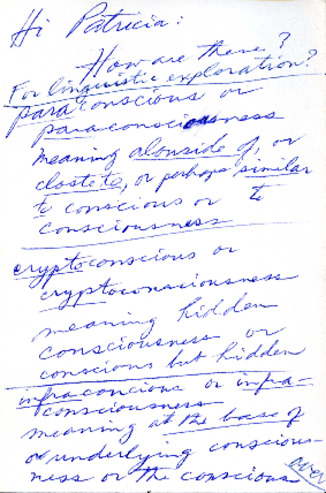 Hi Patricia:
How are these?
For linguistic exploration?
paraconscious or
paraconsciousness
meaning alonside of, or
close to, or perhaps similar
to conscious or to
consciousness
cryptoconscious or
cryptoconsciousness
meaning hidden
consciousness or
conscious but hidden
infraconcious or infra-
consciousness
meaning at the base of
or underlying conscious-
ness or the conscious
over